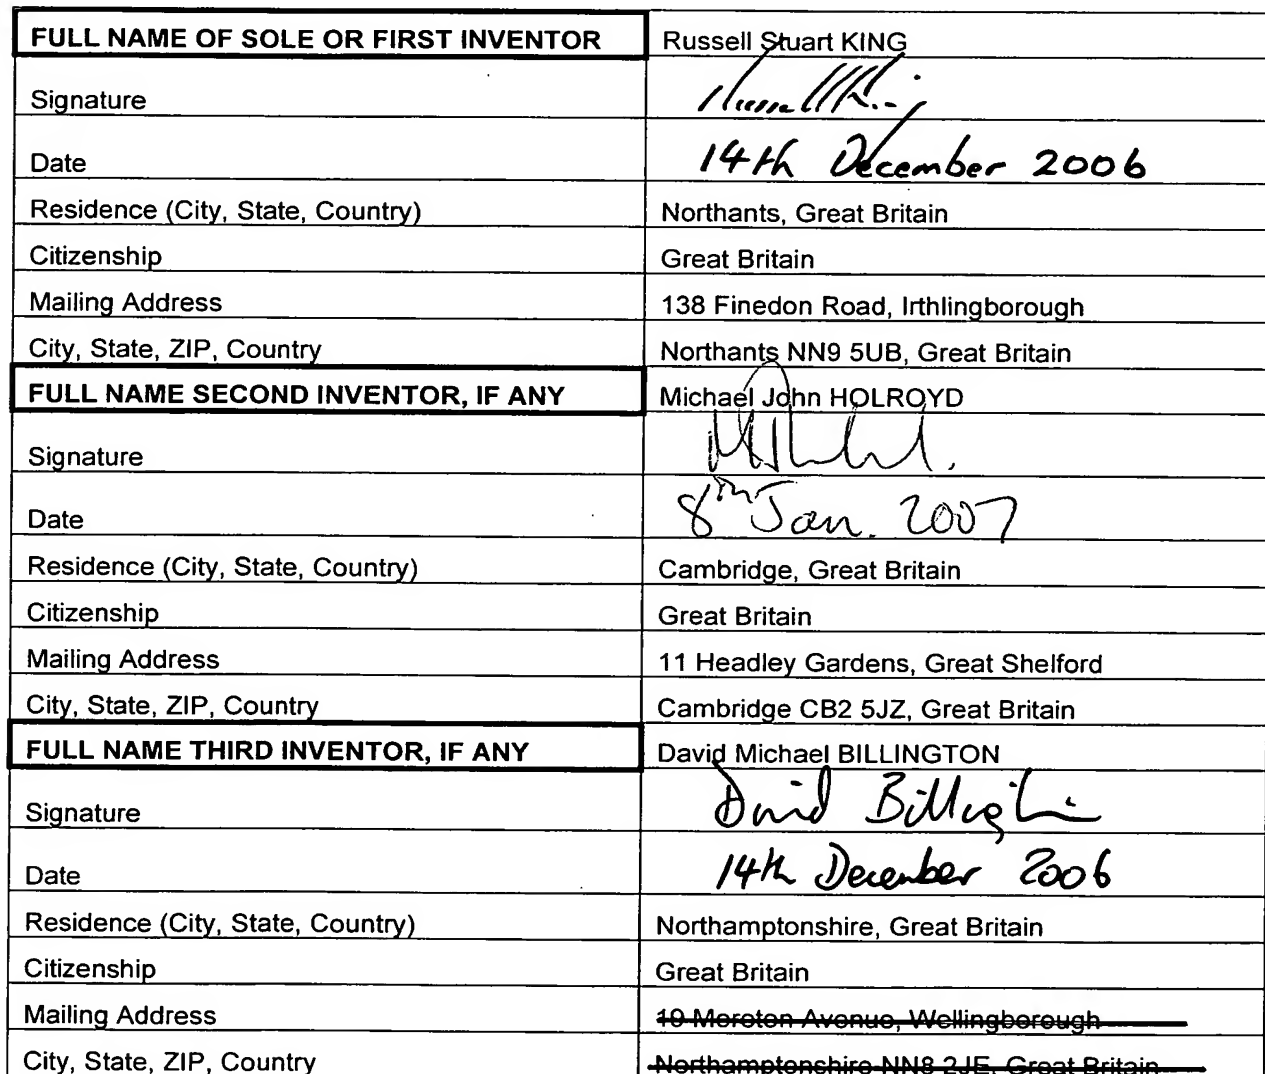 FULL NAME OF SOLE OR FIRST INVENTOR Russell Stuart KING
Signature Russell King
Date 14th December 2006
Residence (City, State, Country) Northants, Great Britain
Citizenship Great Britain
Mailing Address 138 Finedon Road, Irthlingborough
City, State, ZIP, Country Northants NN9 5UB, Great Britain
FULL NAME SECOND INVENTOR, IF ANY Michael John HOLROYD
Signature
Date 8th Jan. 2007
Residence (City, State, Country) Cambridge, Great Britain
Citizenship Great Britain
Mailing Address 11 Headley Gardens, Great Shelford
City, State, ZIP, Country Cambridge CB2 5JZ, Great Britain
FULL NAME THIRD INVENTOR, IF ANY David Michael BILLINGTON
Signature David Billington
Date 14th December 2006
Residence (City, State, Country) Northamptonshire, Great Britain
Citizenship Great Britain
Mailing Address 19 Moreton Avenue, Wellingborough
City, State, ZIP, Country Northamptonshire NN8 2JE, Great Britain